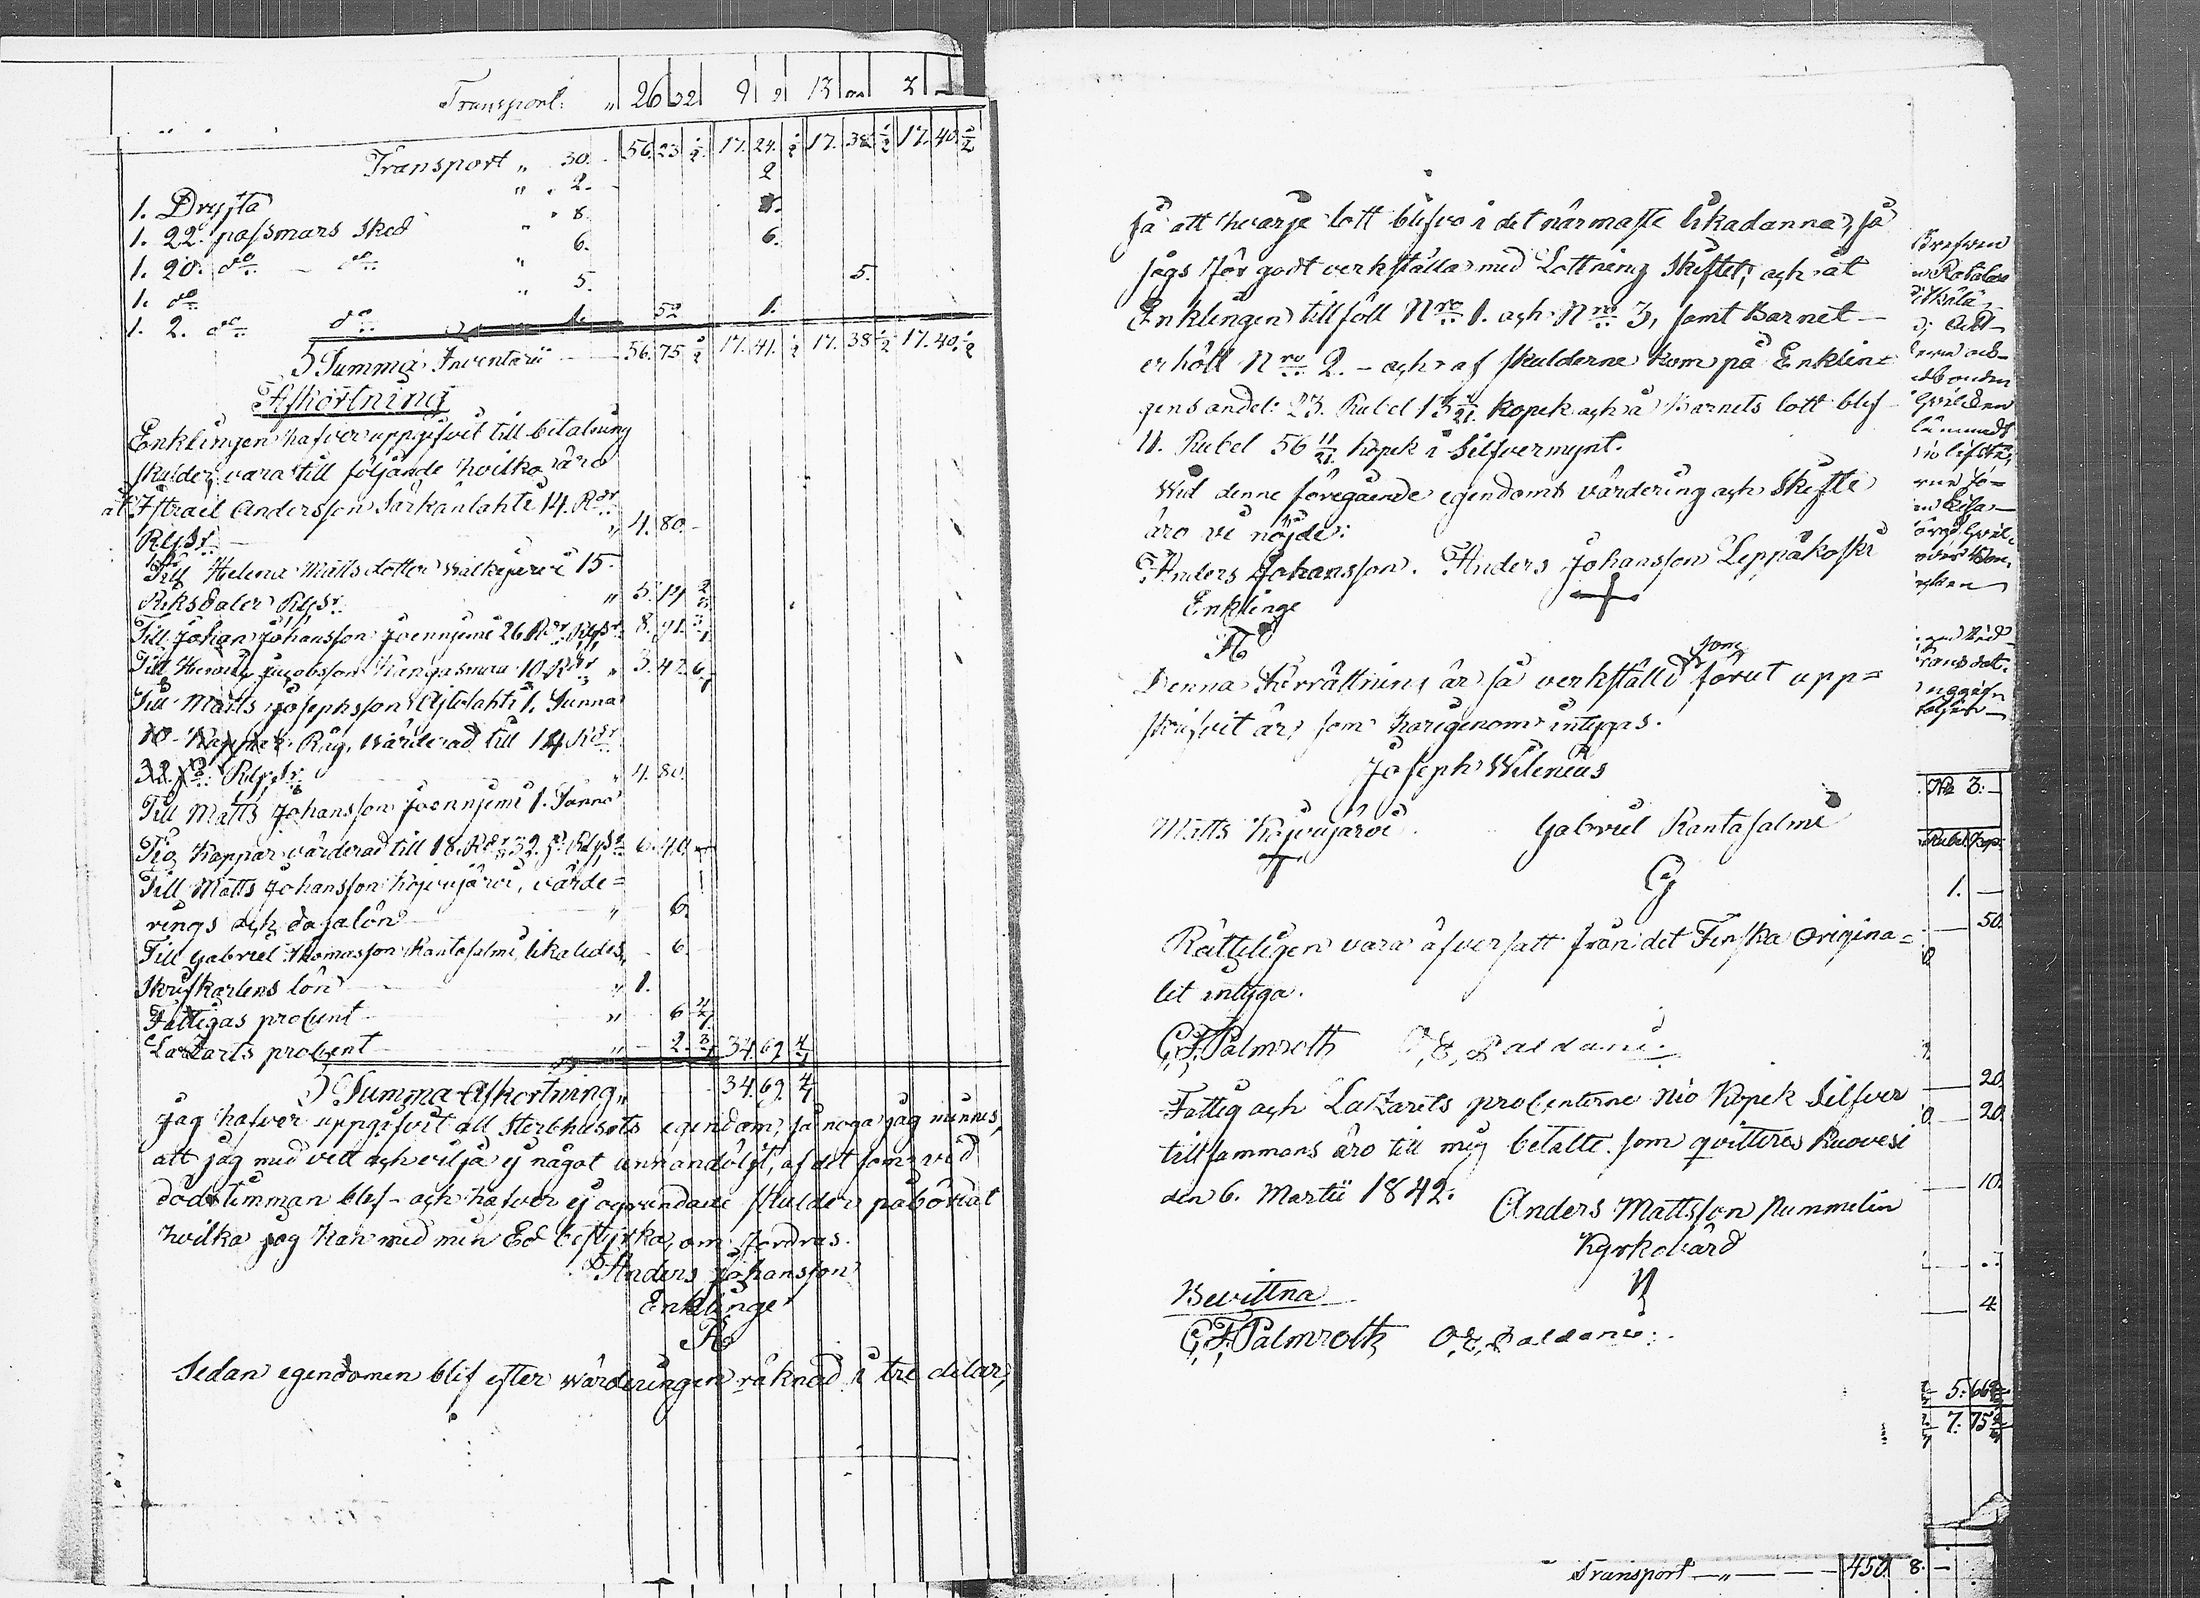 Transport: " 26 32 9 9 13 3
Transport " 30. - 56. 23 1/2 17. 24. 1/2 17. 38 1/2 17. 40. 1/2
1. Dryfta " 2. - 2
1. 22. passmars sked " 8. 8.
1. 20. do - do " 6. 6.
1. do " 5. 5.
1. 2. do do 1. 52 1.
Summa Inventarii - 56. 75 1/2 17. 41. 1/2 17. 38 1/2 17. 40. 1/2
Afkortning
Enklingen hafver uppgifvit till betalning
skulder vara till följande hvilka äro
åt Istrael Andersson Särkänlahti 14. Rdr
Rgs. " 4. 80. -
Till Helena Mattsdotter Walkejärvi 15.
Riksdaler Rgs. " 5. 14 2/7
Till Johan Johansson Joenniemi 26 Rdr Rgs. 8. 91. 3/7
Till Henrik Jacobsson Kangasmaa 10. Rdr " 3. 42 6/7
Till Matts Josephsson Ajtolahti 1. Tunna
10 Kappar Råg, Värderad till 14 Rdr
Rgs. " 4. 80.
Till Matts Johansson Joenniemi 1. Tunna
Tio Kappar värderad till 18. Rdr 32. s. Rgs. 6. 40. -
Till Matts Johansson Kojvujärvi, värde=
rings och dagalön " 6.
Till Gabriel Thomasson Rantasalmi, likaledes, - 6. -
Skrifkarlens lön " 1.
Fattigas procent " 6 4/7
Lazarts procent " 2. 3/7 34. 69. 4/7
Summa Afkortning " 34. 69. 4/7
Jag hafver uppgifvit all Sterbhusets egendom, så noga jag minnes,
att jag med vett och vilja ej något undandöljt, af det som vid
dödstimman blef - och hafver ej ogrundade skulder påbördat
hvilka jag kan med min Ed bestyrka, om fordras.
Anders Johansson
Enklinge
Sedan egendomen blif efter Wärderingen räknad i tre delar,
så att hvarje lott blifvo i det närmaste likadanna, så
sågs för godt verkställa med Lottning Skiftet; och åt
Enklingen tillföll Nro 1. och Nro 3, samt Barnet -
erhöll Nro 2. - och af skulderne kom på Enklin=
gens andel: 23. Rubel 13 1/21. kopek och å Barnets lott blef
11. Rubel 56 11/21. kopek i Silfvermynt.
Wid denne föregående egendoms värdering och Skifte
äro vi nöjde:
Anders Johansson. Anders Johansson Leppäkoski
Enklinge
Denna Förrättning är så verkställd som förut upp=
skrifvit är, som härigenom intygas.
Joseph Wilenius
Matts Kojvujärvi. Gabriel Rantasalmi
Rätteligen vara öfversatt från det Finska Origina=
let intyga.
C. F. Palmroth O. E. Paldani.
Fattig och Lazarets procenterne Nio Kopek Silfver
tillsammans äro till mig betalte som qvitteras Ruovesi
den 6. Martii 1842.
Anders Mattsson Nummelin
Kyrkovärd
Bevittna
C. F. Palmroth O. E. Paldani.
No 3. -
Rubel Kop.
1. -
- 50.
- 20
- 20
- 10.
- 4
5. 66
7. 75
Transport - " - 450 8. -